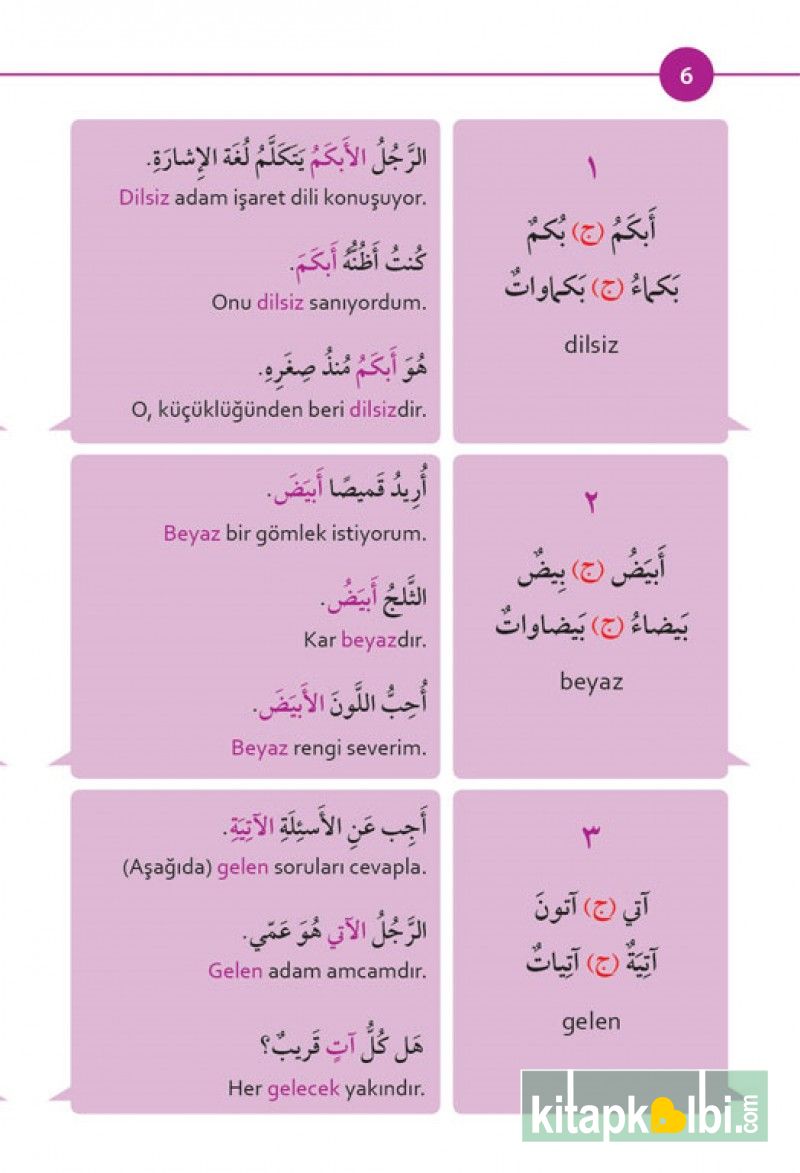 6
١
أَبكَمُ (ج) بُكمٌ
بَكماءُ (ج) بَكماواتٌ
dilsiz
الرَّجُلُ الأَبكَمُ يَتَكَلَّمُ لُغَةَ الإِشارَةِ.
Dilsiz adam işaret dili konuşuyor.
كُنتُ أَظُنُّهُ أَبكَمَ.
Onu dilsiz sanıyordum.
هُوَ أَبكَمُ مُنذُ صِغَرِهِ.
O, küçüklüğünden beri dilsizdir.
٢
أَبيَضُ (ج) بِيضٌ
بَيضاءُ (ج) بَيضاواتٌ
beyaz
أُرِيدُ قَميصًا أَبيَضَ.
Beyaz bir gömlek istiyorum.
الثَّلجُ أَبيَضُ.
Kar beyazdır.
أُحِبُّ اللَّونَ الأَبيَضَ.
Beyaz rengi severim.
٣
آتي (ج) آتونَ
آتِيَةٌ (ج) آتِياتٌ
gelen
أَجِب عَنِ الأَسئِلَةِ الآتِيَةِ.
(Aşağıda) gelen soruları cevapla.
الرَّجُلُ الآتي هُوَ عَمّي.
Gelen adam amcamdır.
هَل كُلُّ آتٍ قَريبٌ؟
Her gelecek yakındır.
kitapkalbi.com